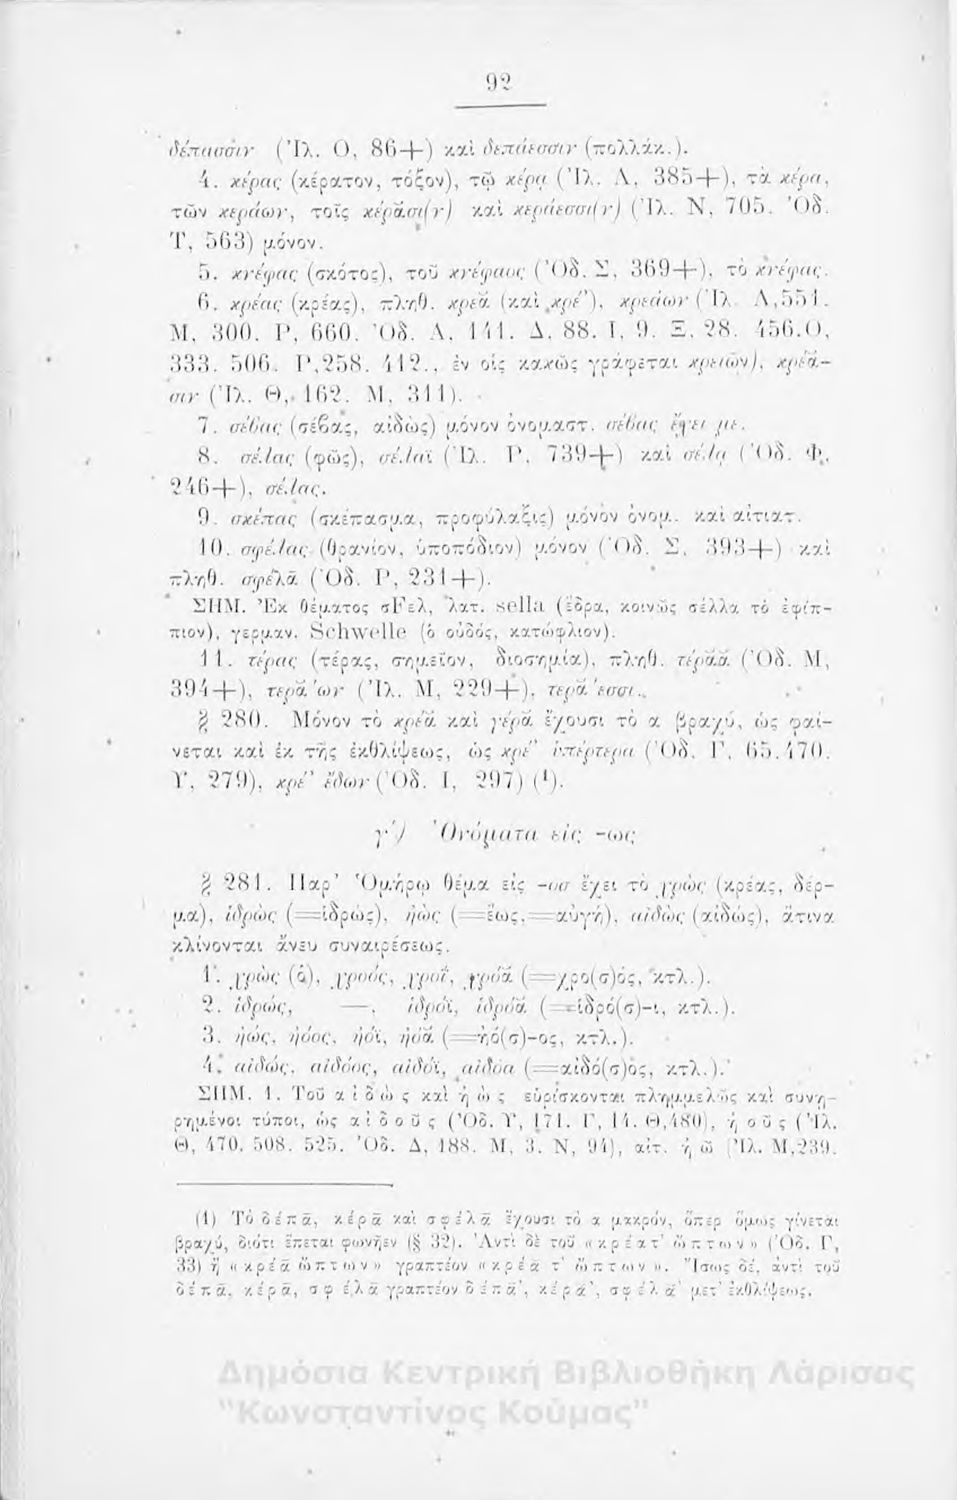 92
δέπασσιν (Ἰλ. Ο, 86+) καὶ δεπάεσσιν (πολλάκ.).
4. κέρας (κέρατον, τόξον), τῷ κέρᾳ (Ἰλ. Λ, 385+), τὰ κέρα,
τῶν κεράων, τοῖς κέρᾱσι(ν) καὶ κεράεσσι(ν) (Ἰλ. Ν, 705. Ὀδ.
Τ, 563) μόνον.
5. κνέφας (σκότος), τοῦ κνέφαος (Ὀδ. Σ, 369+), τὸ κνέφας.
6. κρέας (κρέας), πληθ. κρέᾰ (καὶ κρέ'), κρεάων (Ἰλ. Λ,551.
Μ, 300. Ρ, 660. Ὀδ. Α, 141. Δ, 88. Ι, 9. Ξ, 28. 456.Ο,
333. 506. Ρ,258. 412., ἐν οἷς κακῶς γράφεται κρειῶν), κρέα-
σιν (Ἰλ. Θ, 162. Μ, 311).
7. σέβας (σέβας, αἰδὼς) μόνον ὀνομαστ. σέβας ἔχει με.
8. σέλας (φῶς), σέλαϊ (Ἰλ. Ρ, 739+) καὶ σέλᾳ (Ὀδ. Φ,
246+), σέλας.
9. σκέπας (σκέπασμα, προφύλαξις) μόνον ὀνομ. καὶ αἰτιατ.
10. σφέλας (θρανίον, ὑποπόδιον) μόνον (Ὀδ. Σ, 393+) καὶ
πληθ. σφέλᾰ (Ὀδ. Ρ, 231+).
ΣΗΜ. Ἐκ θέματος σFελ, λατ. sella (ἕδρα, κοινῶς σέλλα τὸ ἐφίπ-
πιον), γερμαν. Schwelle (ὁ οὐδός, κατώφλιον).
11. τέρας (τέρας, σημεῖον, διοσημία), πληθ. τέρᾰα (Ὀδ. Μ,
394+), τερᾰ΄ων (Ἰλ. Μ, 229+), τερᾰ΄εσσι.
§ 280. Μόνον τὸ κρέᾰ καὶ γέρᾰ ἔχουσι τὸ α βραχύ, ὡς φαί-
νεται καὶ ἐκ τῆς ἐκθλίψεως, ὡς κρέ' ὑπέρτερα (Ὀδ. Γ, 65.470.
Υ, 279), κρέ' ἔδων (Ὀδ. Ι, 297) (¹).
γ΄) Ὀνόματα εἰς -ως
§ 281. Παρ' Ὁμήρῳ θέμα εἰς -οσ ἔχει τὸ χρὼς (κρέας, δέρ-
μα), ἱδρὼς (=ἱδρώς), ἠὼς (=ἕως,=αὐγή), αἰδὼς (αἰδώς), ἅτινα
κλίνονται ἄνευ συναιρέσεως.
1. χρὼς (ὁ), χροός, χροΐ, χρόᾰ (=χρο(σ)ός, κτλ.).
2. ἱδρώς, —, ἱδρόϊ, ἱδρόᾰ (=ἱδρό(σ)-ι, κτλ.).
3. ἠώς, ἠόος, ἠόϊ, ἠόᾰ (=ἠό(σ)-ος, κτλ.).
4. αἰδώς, αἰδόος, αἰδόϊ, αἰδόα (=αἰδό(σ)ος, κτλ.).
ΣΗΜ. 1. Τοῦ αἰδὼς καὶ ἠὼς εὑρίσκονται πλημμελῶς καὶ συνῃ-
ρημένοι τύποι, ὡς αἰδοῦς (Ὀδ. Υ, 171. Γ, 14. Θ,480), ἠοῦς (Ἰλ.
Θ, 470. 508. 525. Ὀδ. Δ, 188. Μ, 3. Ν, 94), αἰτ. ἠῶ (Ἰλ. Μ,239.
(1) Τὸ δέπᾰ, κέρᾰ καὶ σφέλᾰ ἔχουσι τὸ α μακρόν, ὅπερ ὅμως γίνεται
βραχύ, διότι ἕπεται φωνῆεν (§ 32). Ἀντὶ δὲ τοῦ «κρέατ' ὤπτων» (Ὀδ. Γ,
33) ἢ «κρέᾰ ὤπτων» γραπτέον «κρέᾰ τ' ὤπτων». Ἴσως δέ, ἀντὶ τοῦ
δέπᾰ, κέρᾰ, σφέλᾰ γραπτέον δέπᾰ', κέρᾰ', σφέλᾰ' μετ' ἐκθλίψεως.
Δημόσια Κεντρική Βιβλιοθήκη Λάρισας
"Κωνσταντίνος Κούμας"